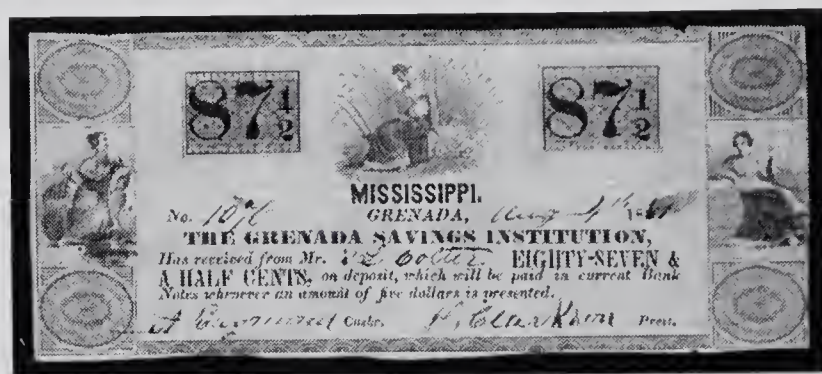 87 1/2 87 1/2
MISSISSIPPI.
No. GRENADA, Aug 4th 18
THE GRENADA SAVINGS INSTITUTION,
Has received from Mr. Colter. EIGHTY-SEVEN &
A HALF CENTS, on deposit, which will be paid in current Bank
Notes whenever an amount of five dollars is presented.
Cashr. P. Clarkson Prest.